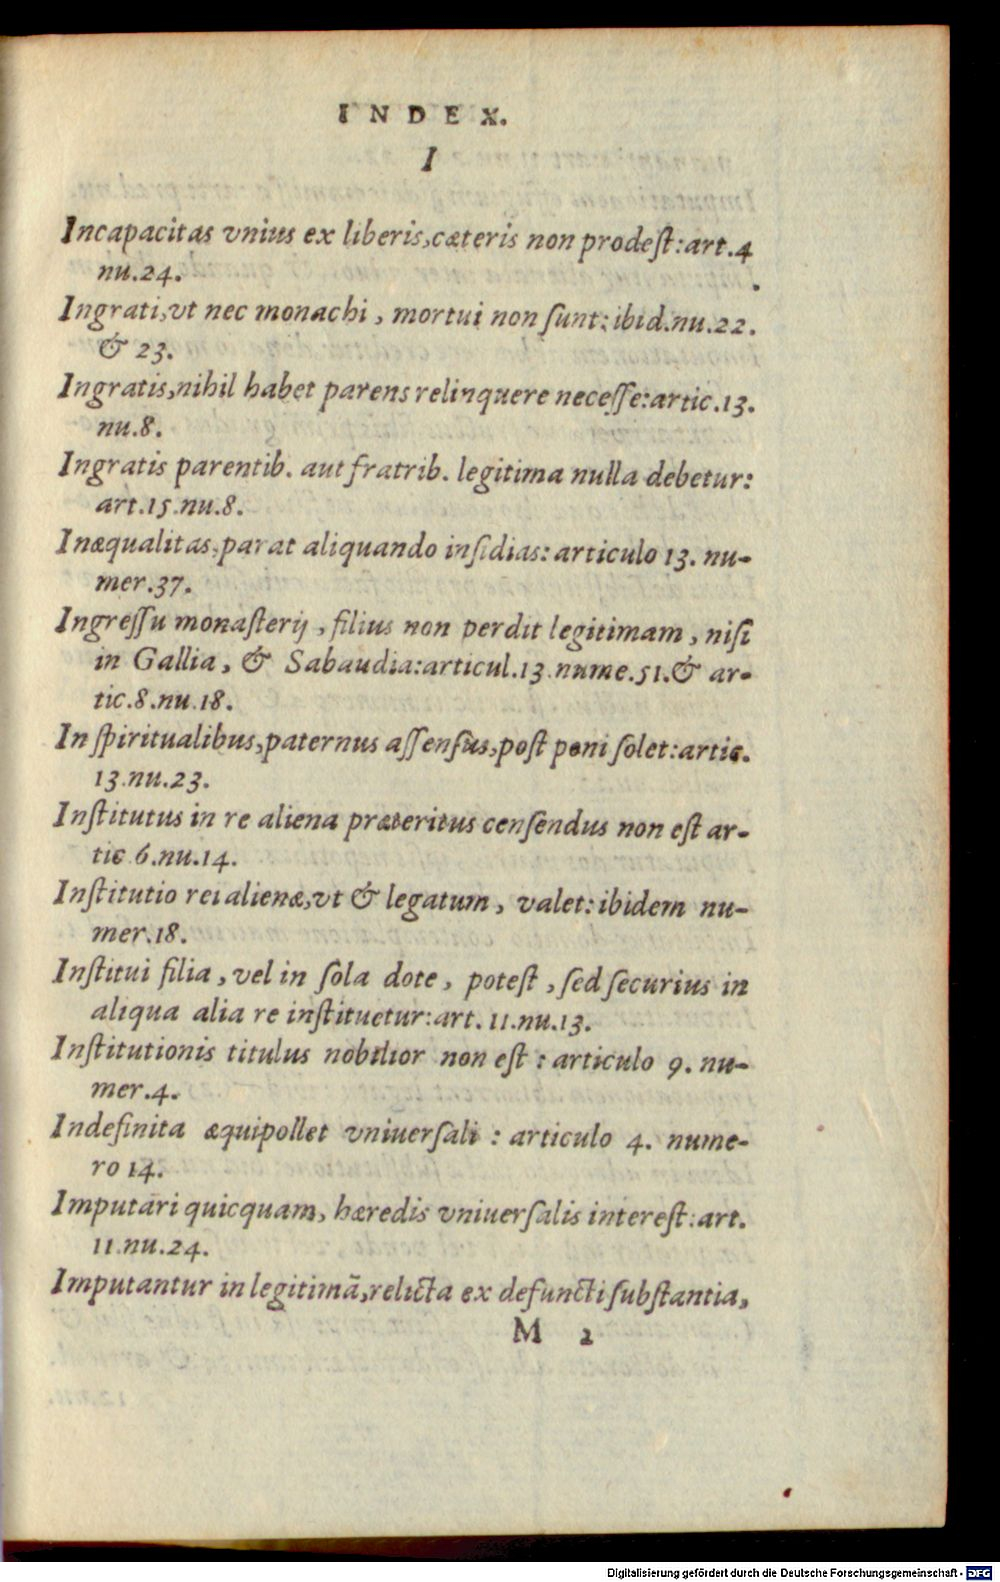 INDEX.
I
Incapacitas vnius ex liberis, cæteris non prodeſt: art. 4
nu. 24.
Ingrati, vt nec monachi, mortui non ſunt: ibid. nu. 22.
& 23.
Ingratis, nihil habet parens relinquere neceſſe: artic. 13.
nu. 8.
Ingratis parentib. aut fratrib. legitima nulla debetur:
art. 15. nu. 8.
Inæqualitas, parat aliquando inſidias: articulo 13. nu-
mer. 37.
Ingreſſu monaſterij, filius non perdit legitimam, niſi
in Gallia, & Sabaudia: articul. 13. nume. 51. & ar-
tic. 8. nu. 18.
In ſpiritualibus, paternus aſſenſus, poſt poni ſolet: artic.
13. nu. 23.
Inſtitutus in re aliena præteritus cenſendus non eſt ar-
tic 6. nu. 14.
Inſtitutio rei alienæ, vt & legatum, valet: ibidem nu-
mer. 18.
Inſtitui filia, vel in ſola dote, poteſt, ſed ſecurius in
aliqua alia re inſtituetur: art. 11. nu. 13.
Inſtitutionis titulus nobilior non eſt: articulo 9. nu-
mer. 4.
Indefinita æquipollet vniuerſali: articulo 4. nume-
ro 14.
Imputari quicquam, hæredis vniuerſalis intereſt: art.
11. nu. 24.
Imputantur in legitimā, relicta ex defuncti ſubſtantia,
M 2
Digitalisierung gefördert durch die Deutsche Forschungsgemeinschaft - DFG